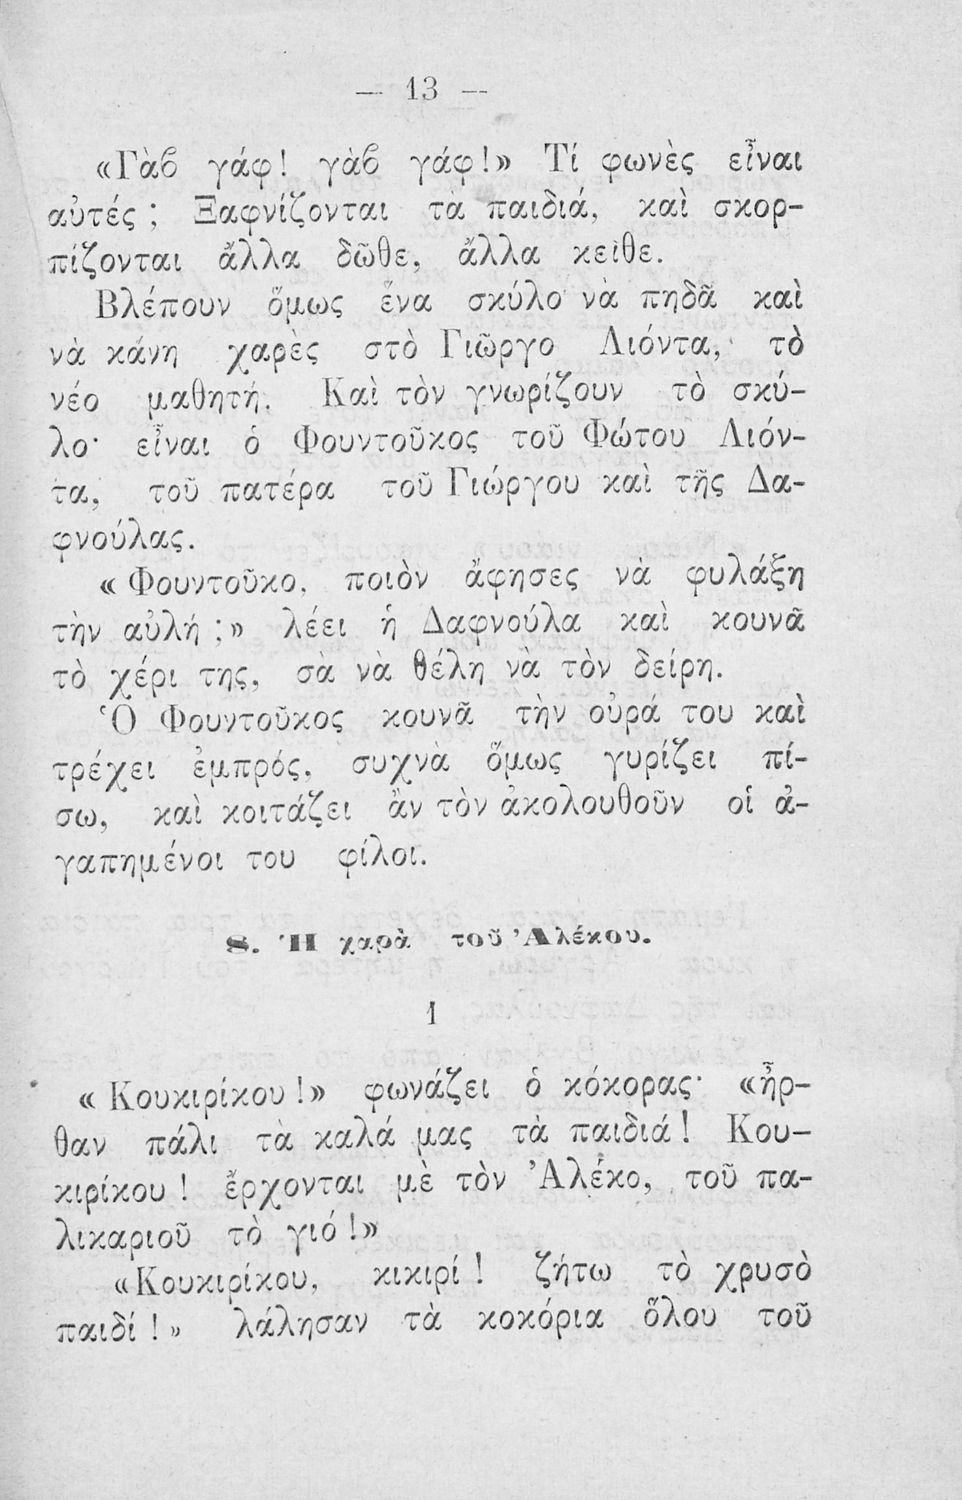 — 13 —
«Γὰβ γάφ! γὰβ γάφ!» Τί φωνὲς εἶναι
αὐτές ; Ξαφνίζονται τὰ παιδιά, καὶ σκορ-
πίζονται ἄλλα δῶθε, ἄλλα κεῖθε.
Βλέπουν ὅμως ἕνα σκύλο νὰ πηδᾶ καὶ
νὰ κάνη χαρὲς στὸ Γιῶργο Λιόντα, τὸ
νέο μαθητή. Καὶ τὸν γνωρίζουν τὸ σκύ-
λο· εἶναι ὁ Φουντοῦκος τοῦ Φώτου Λιόν-
τα, τοῦ πατέρα τοῦ Γιώργου καὶ τῆς Δα-
φνούλας.
« Φουντοῦκο, ποιὸν ἄφησες νὰ φυλάξη
τὴν αὐλή ;» λέει ἡ Δαφνούλα καὶ κουνᾶ
τὸ χέρι της, σὰ νὰ θέλη νὰ τὸν δείρη.
Ὁ Φουντοῦκος κουνᾶ τὴν οὐρά του καὶ
τρέχει ἐμπρός, συχνὰ ὅμως γυρίζει πί-
σω, καὶ κοιτάζει ἂν τὸν ἀκολουθοῦν οἱ ἀ-
γαπημένοι του φίλοι.
8. Ἡ χαρὰ τοῦ Ἀλέκου.
1
« Κουκιρίκου !» φωνάζει ὁ κόκορας· «ἦρ-
θαν πάλι τὰ καλά μας τὰ παιδιά ! Κου-
κιρίκου ! ἔρχονται μὲ τὸν Ἀλέκο, τοῦ πα-
λικαριοῦ τὸ γιό !»
«Κουκιρίκου, κικιρί ! ζήτω τὸ χρυσὸ
παιδί !» λάλησαν τὰ κοκόρια ὅλου τοῦ